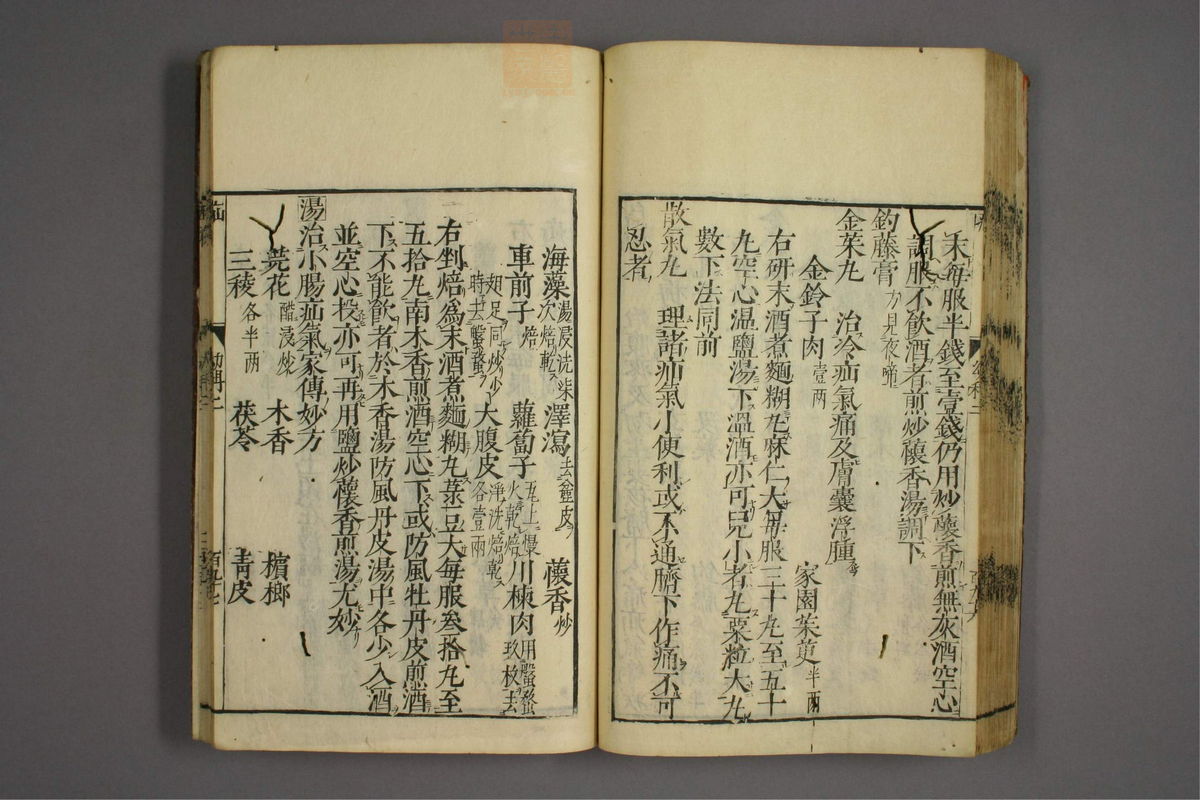 末每服半錢至壹錢仍用炒蘹香煎無灰酒空心
調服不飲酒者煎炒蘹香湯調下
釣藤膏 方見夜啼
金茱丸 治冷疝氣痛及膚囊浮腫
金鈴子肉 壹兩 家園茱萸 半兩
右研末酒煮麵糊丸麻仁大每服三十丸至五十
丸空心溫鹽湯下溫酒亦可兒小者丸粟粒大丸
數下法同前
散氣丸 理諸疝氣小便利或不通臍下作痛不可
忍者
海藻 湯浸洗柴次焙乾 澤瀉 去麄皮 蘹香 炒
車前子 焙 蘿蔔子 瓦上慢火乾焙 川楝肉 用盤蝥玖枚去
翅足同炒少時去盤蝥 大腹皮 淨洗焙乾各壹兩
右剉焙爲末酒煮麵糊丸菉豆大每服叁拾丸至
五拾丸南木香煎酒空心下或防風牡丹皮煎酒
下不能飲者於木香湯防風丹皮湯中各少入酒
並空心投亦可再用鹽炒蘹香煎湯尤妙
湯治小腸疝氣家傳妙方
芫花 醋浸炒 木香 檳榔
三稜 各半兩 茯苓 靑皮